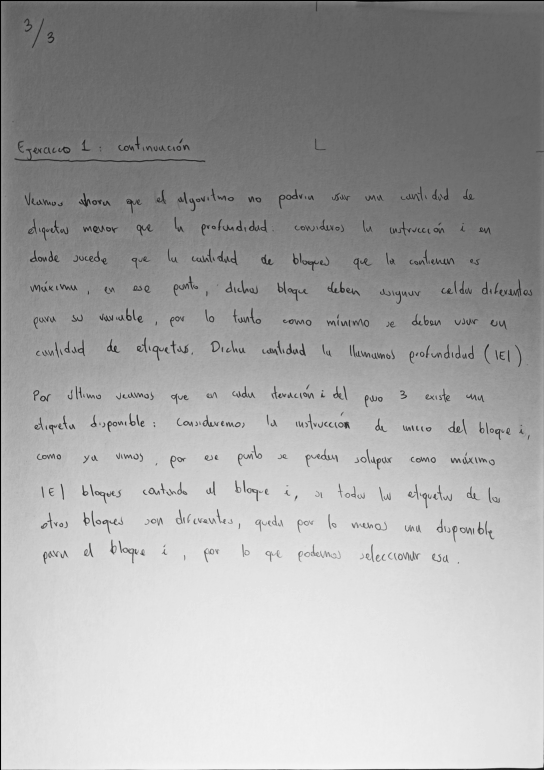 3/3
Ejercicio 1: continuación
Veamos ahora que el algoritmo no podria usar una cantidad de
etiquetas menor que la profundidad. consideros la instrucción i en
donde sucede que la cantidad de bloques que la contienen es
máxima, en ese punto, dichas bloque deben asignar celdas diferentes
para su variable, por lo tanto como mínimo se deben usar en
cantidad de etiquetas. Dicha cantidad la llamamos profundidad (|E|)
Por último veamos que en cada iteración i del paso 3 existe una
etiqueta disponible: Consideremos la instrucción de inicio del bloque i,
como ya vimos, por ese punto se pueden solapar como máximo
|E| bloques contando al bloque i, si todas las etiquetas de los
otros bloques son diferentes, queda por lo menos una disponible
para el bloque i, por lo que podemos seleccionar esa.